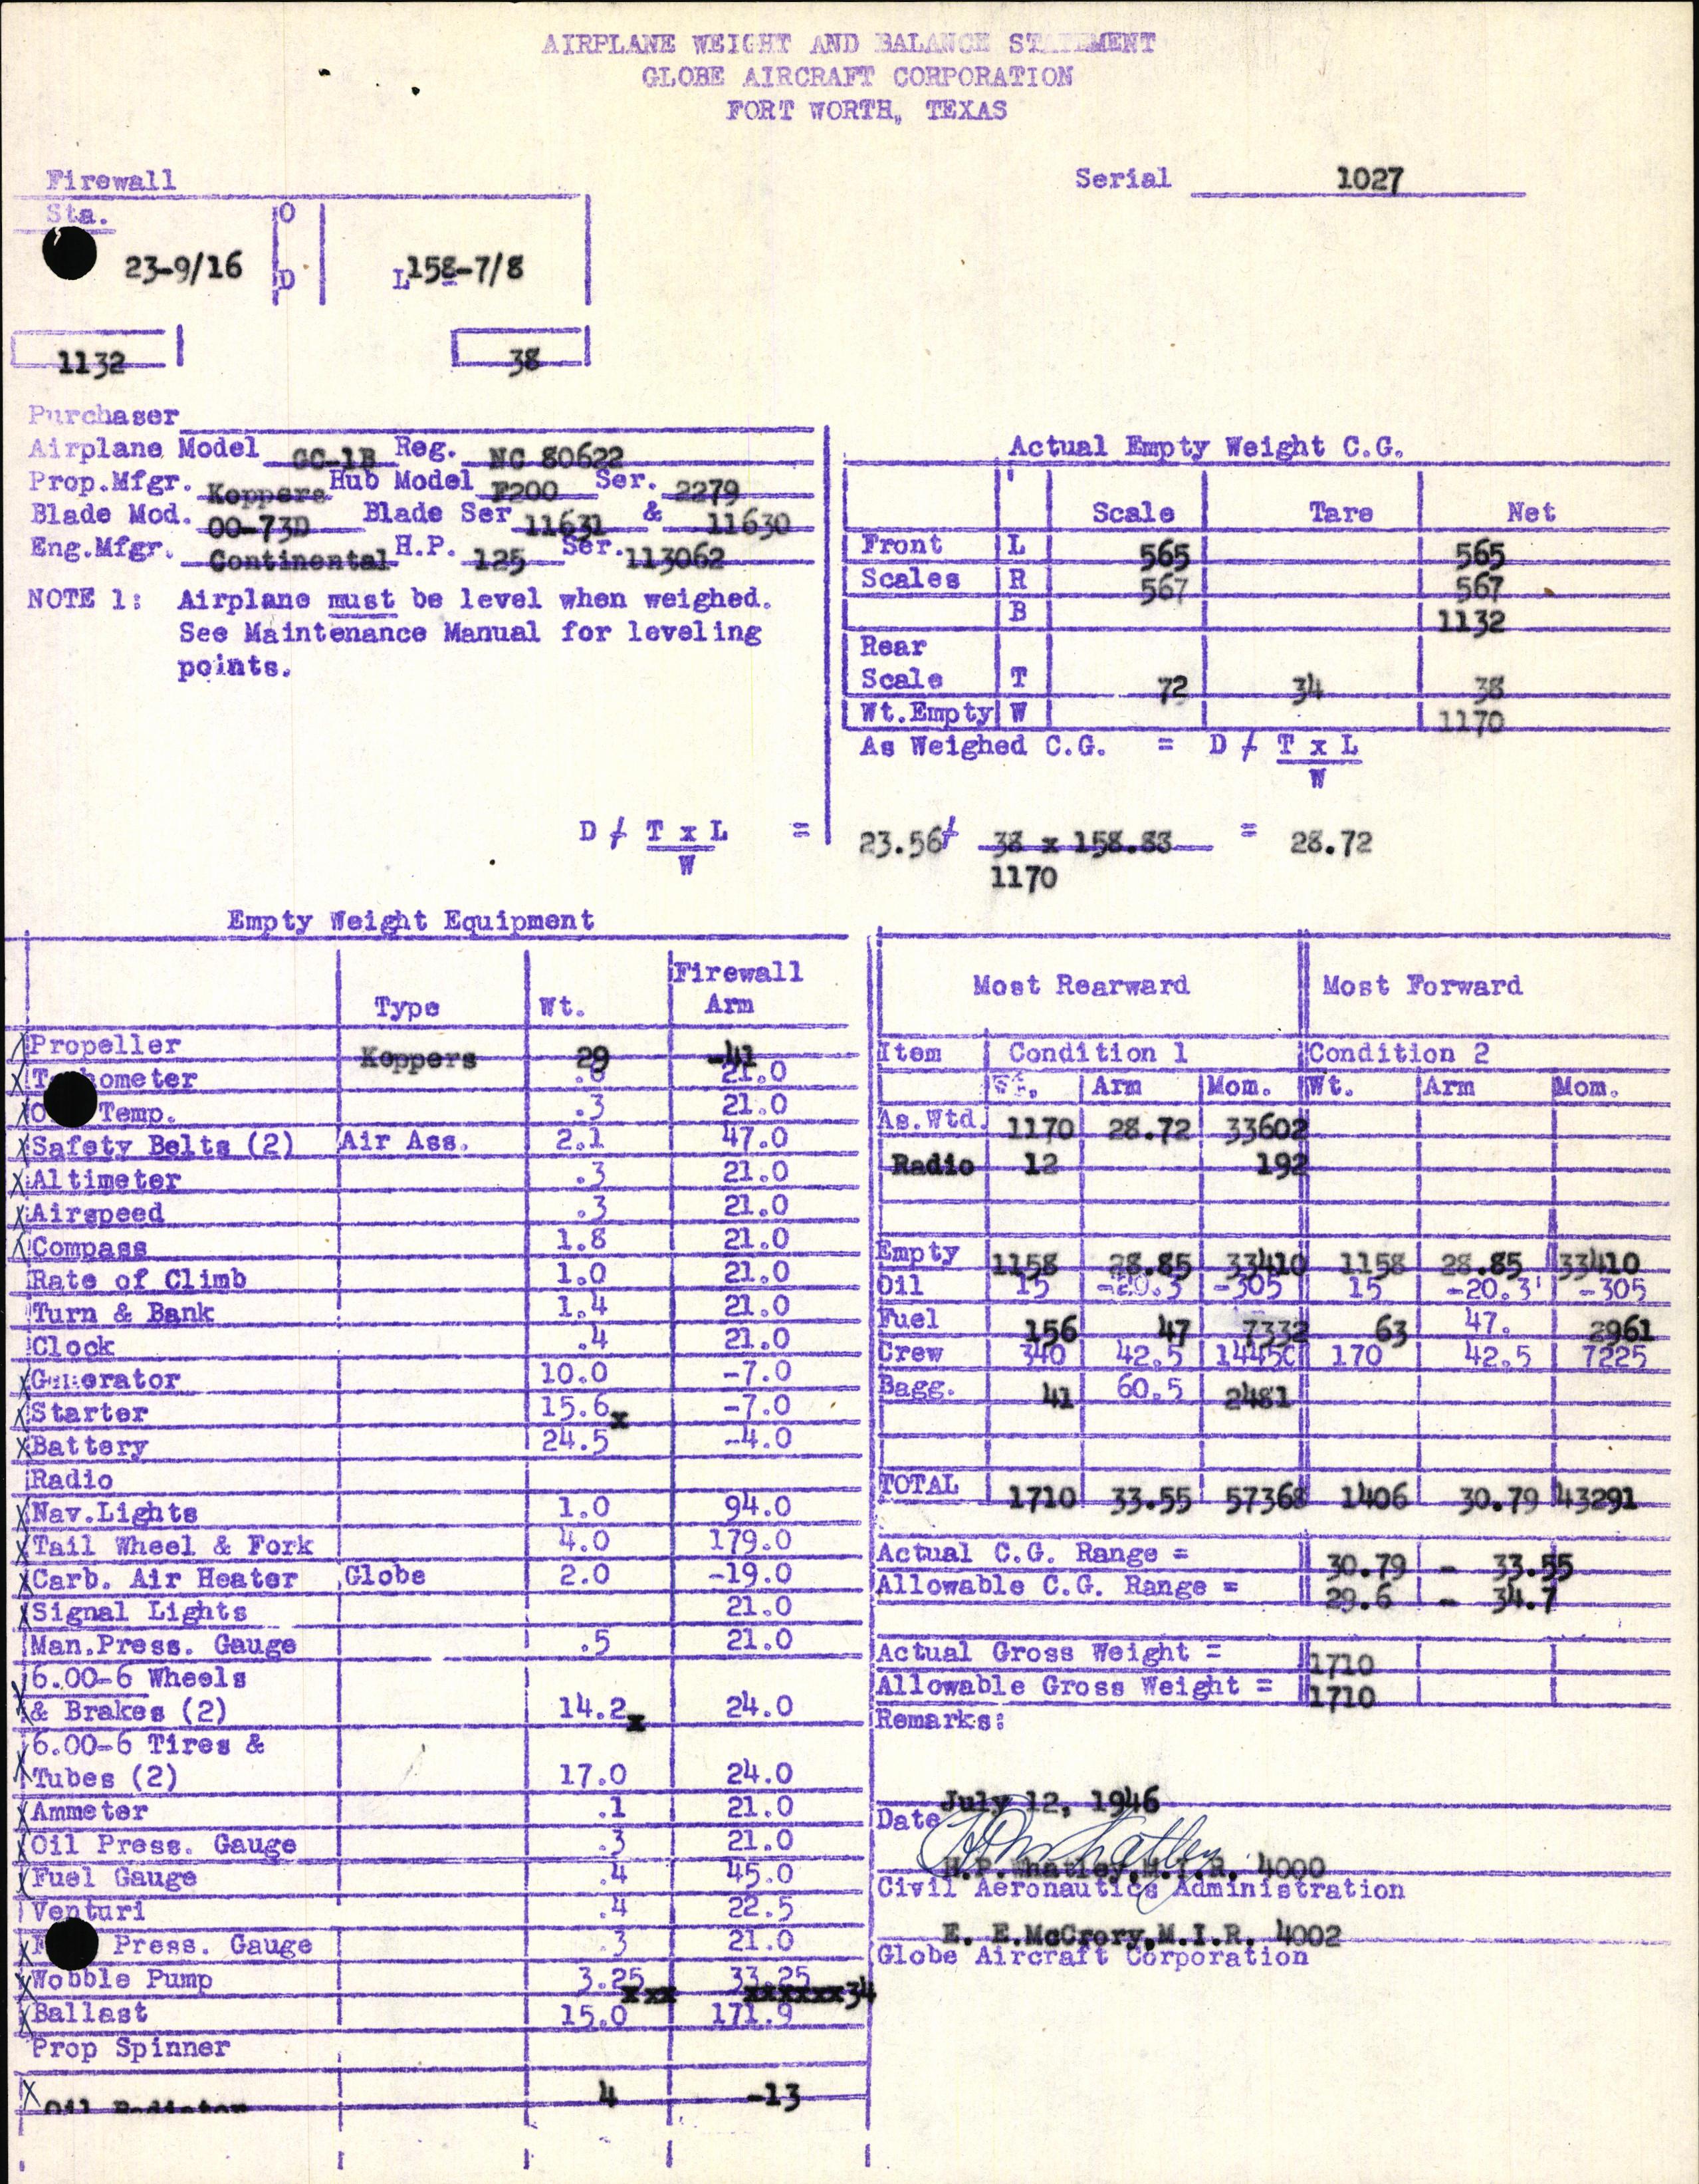 AIRPLANE WEIGHT AND BALANCE STATEMENT
GLOBE AIRCRAFT CORPORATION
FORT WORTH, TEXAS
Firewall
Serial 1027
Sta. O
23-9/16 D L 158-7/8
1132 38
Purchaser
Airplane Model GC-1B Reg. NC 80622
Prop.Mfgr. Koppers Hub Model F200 Ser. 2279
Blade Mod. 00-73D Blade Ser 11631 & 11630
Eng.Mfgr. Continental H.P. 125 Ser. 113062
NOTE 1: Airplane must be level when weighed.
See Maintenance Manual for leveling
points.
Actual Empty Weight C.G.
Scale Tare Net
Front L 565 565
Scales R 567 567
B 1132
Rear
Scale T 72 34 38
Wt.Empty W 1170
As Weighed C.G. = D + T x L
W
D + T x L = 23.56+ 38 x 158.88 = 28.72
W 1170
Empty Weight Equipment
Type Wt. Firewall Arm
X Propeller Koppers 29 -41
X T ometer 21.0
X O Temp. .3 21.0
X Safety Belts (2) Air Ass. 2.1 47.0
X Altimeter .3 21.0
X Airspeed .3 21.0
X Compass 1.8 21.0
Rate of Climb 1.0 21.0
Turn & Bank 1.4 21.0
Clock .4 21.0
X Generator 10.0 -7.0
X Starter 15.6 x -7.0
X Battery 24.5 -4.0
Radio
X Nav.Lights 1.0 94.0
X Tail Wheel & Fork 4.0 179.0
X Carb. Air Heater Globe 2.0 -19.0
X Signal Lights 21.0
Man.Press. Gauge .5 21.0
6.00-6 Wheels
X & Brakes (2) 14.2 x 24.0
6.00-6 Tires &
X Tubes (2) 17.0 24.0
X Ammeter .1 21.0
X Oil Press. Gauge .3 21.0
X Fuel Gauge .4 45.0
Venturi .4 22.5
X F Press. Gauge .3 21.0
X Wobble Pump 3.25 33.25
xxx xxxxxx34
X Ballast 15.0 171.9
Prop Spinner
X Oil Radiator 4 -13
Most Rearward Most Forward
Item Condition 1 Condition 2
Wt. Arm Mom. Wt. Arm Mom.
As.Wtd. 1170 28.72 33602
Radio 12 192
Empty 1158 28.85 33410 1158 28.85 33410
Oil 15 -20.3 -305 15 -20.3 -305
Fuel 156 47 7332 63 47. 2961
Crew 340 42.5 14450 170 42.5 7225
Bagg. 41 60.5 2481
TOTAL 1710 33.55 57368 1406 30.79 43291
Actual C.G. Range = 30.79 - 33.55
Allowable C.G. Range = 29.6 - 34.7
Actual Gross Weight = 1710
Allowable Gross Weight = 1710
Remarks:
July 12, 1946
Date
H.P.Whatley,M.I.R. 4000
Civil Aeronautics Administration
E. E.McCrory,M.I.R. 4002
Globe Aircraft Corporation